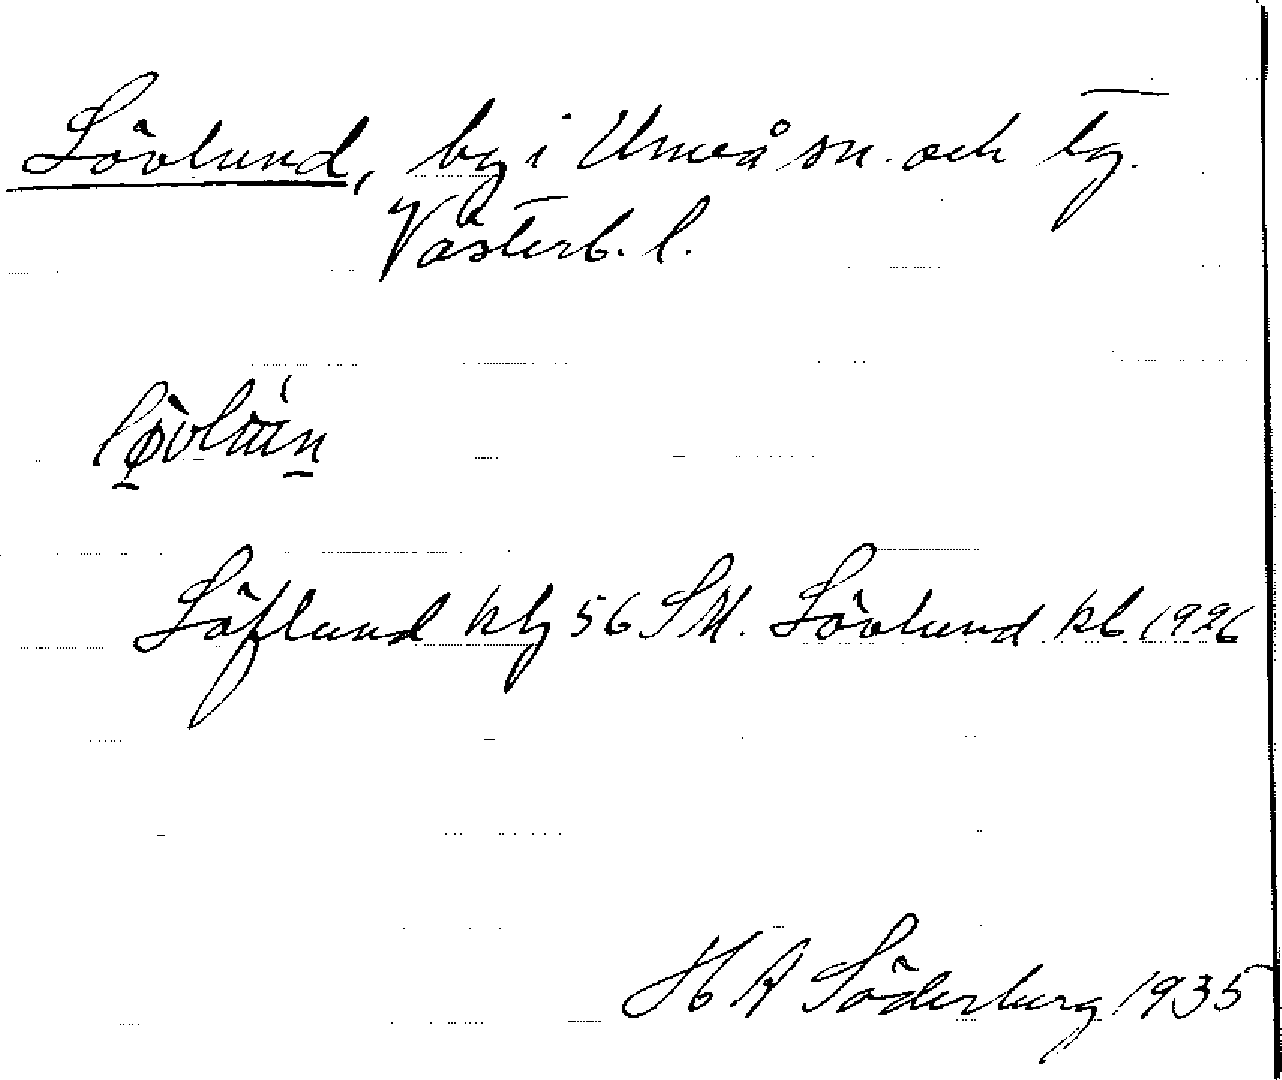 Lövlund, by i Umeå sn. och tg.
Västerb. l.
Löflund klg 56 SM. Lövlund kb 1926
H A Söderberg 1935